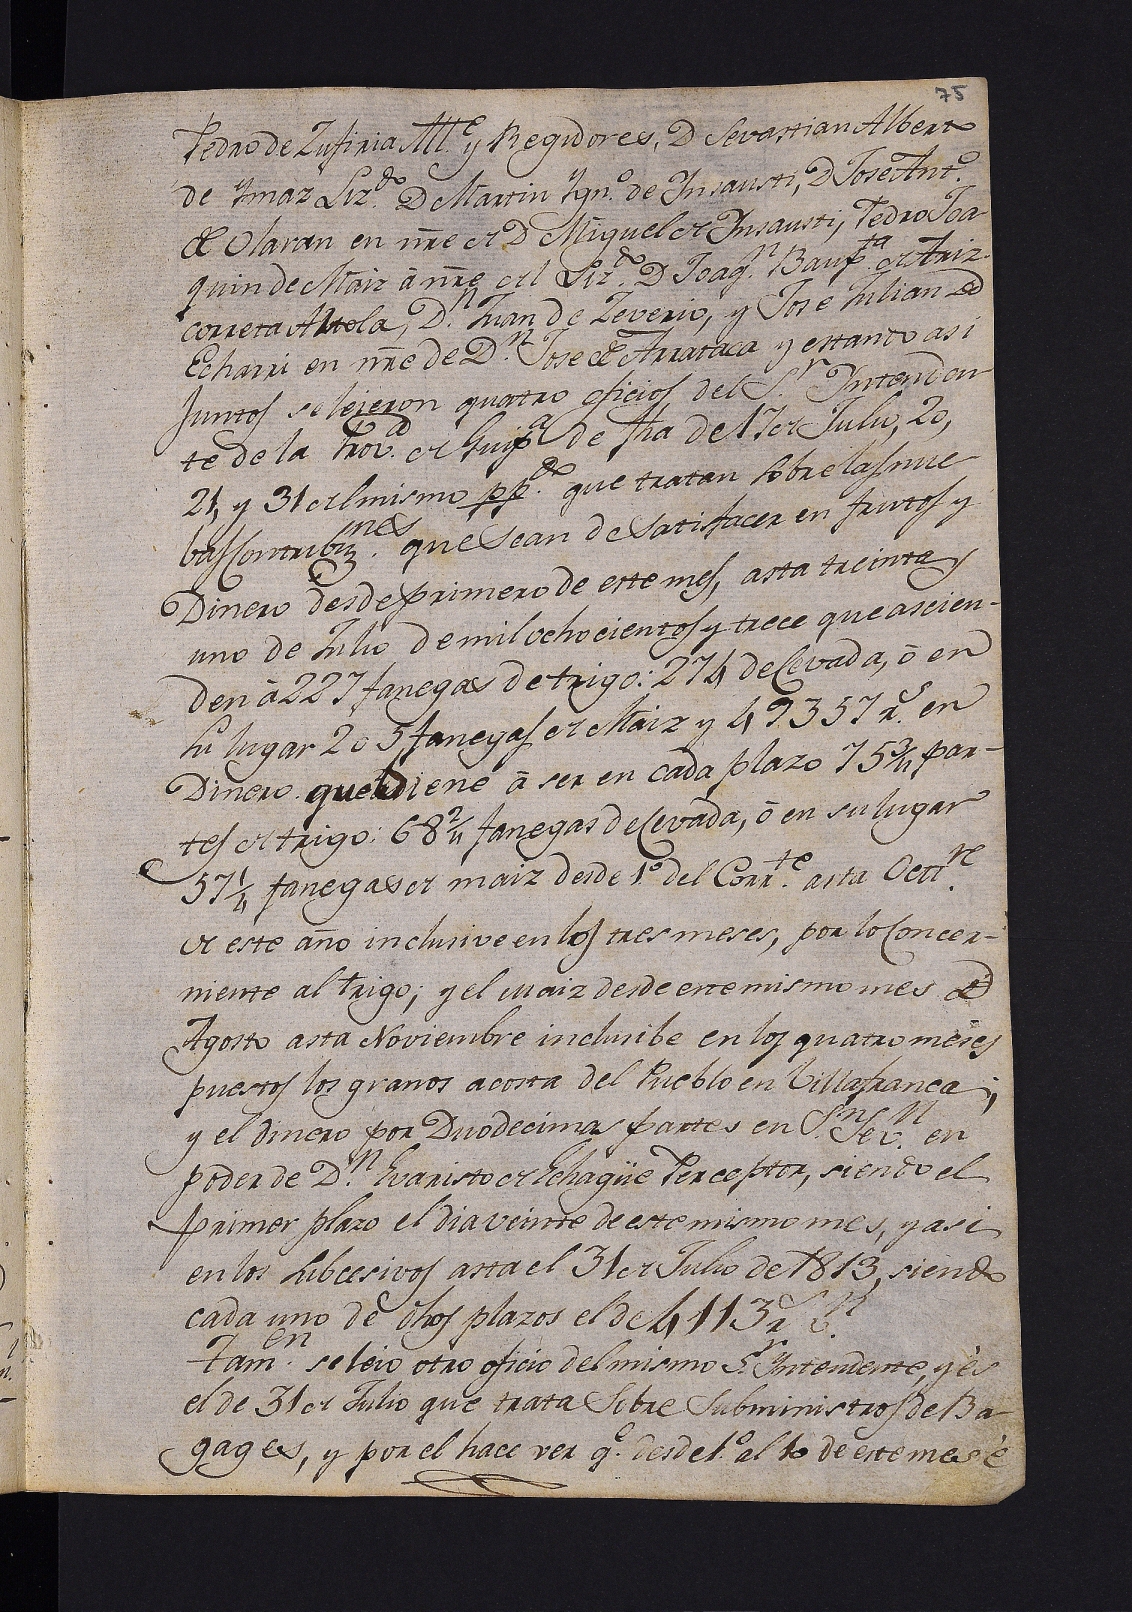 75
Pedro de Zufiria Alle. y Regidores, D Sevastian Alberto
de Ymaz Lizdo. D Martin Ygno. de Insausti, D Jose Anto.
de Olaran en nre de D Miguel de Insausti, Pedro Joa
quin de Maiz à nre del Lizdo. D Joaqn. Baupta de Ariz-
correta Altola, Dn. Juan de Zeverio, y Jose Julian de
Echarri en nre de Dn. Jose de Arrataca y estando asi
juntos se leieron quatro oficios del Sr. Yntenden
te de la Provd. de Guipa de fha de 17 de Julio, 20,
21, y 31 del mismo ppdo. que tratan sobre las nue
bas Contribuznes. que sean de satisfacer en frutos y
Dinero desde primero de este mes, asta treinta y
uno de Julio de mil ochocientos y trece que ascien-
den à 227 fanegas de trigo: 274 de Cevada, ò en
su lugar 205 fanegas de Maiz y 49357 rs. en
Dinero que biene à ser en cada plazo 75 3/4 par-
tes de trigo: 68 2/4 fanegas de Cevada, ò en su lugar
57 1/4 fanegas de maiz desde 1o del Corrte. asta Octtre.
de este año inclusive en los tres meses, por lo Concer-
niente al trigo; y el maiz desde este mismo mes de
Agosto asta Noviembre inclusibe en los quatro meses
puestos los granos acosta del Pueblo en Villafranca;
y el dinero por Duodecimas partes en Sn. Sevn. en
poder de Dn. Evaristo de Echagüe Perceptor, siendo el
primer plazo el dia veinte de este mismo mes, y asi
en los subcesivos asta el 31 de Julio de 1813, siendo
cada uno de dhos plazos el de 4113 rs vn.
Tamen. se leio otro oficio del mismo Sr. Yntendente, y es
el de 31 de Julio que trata sobre Subministros de Ba
gages, y por el hace ver qe. desde 1o. al 10 de este mes è